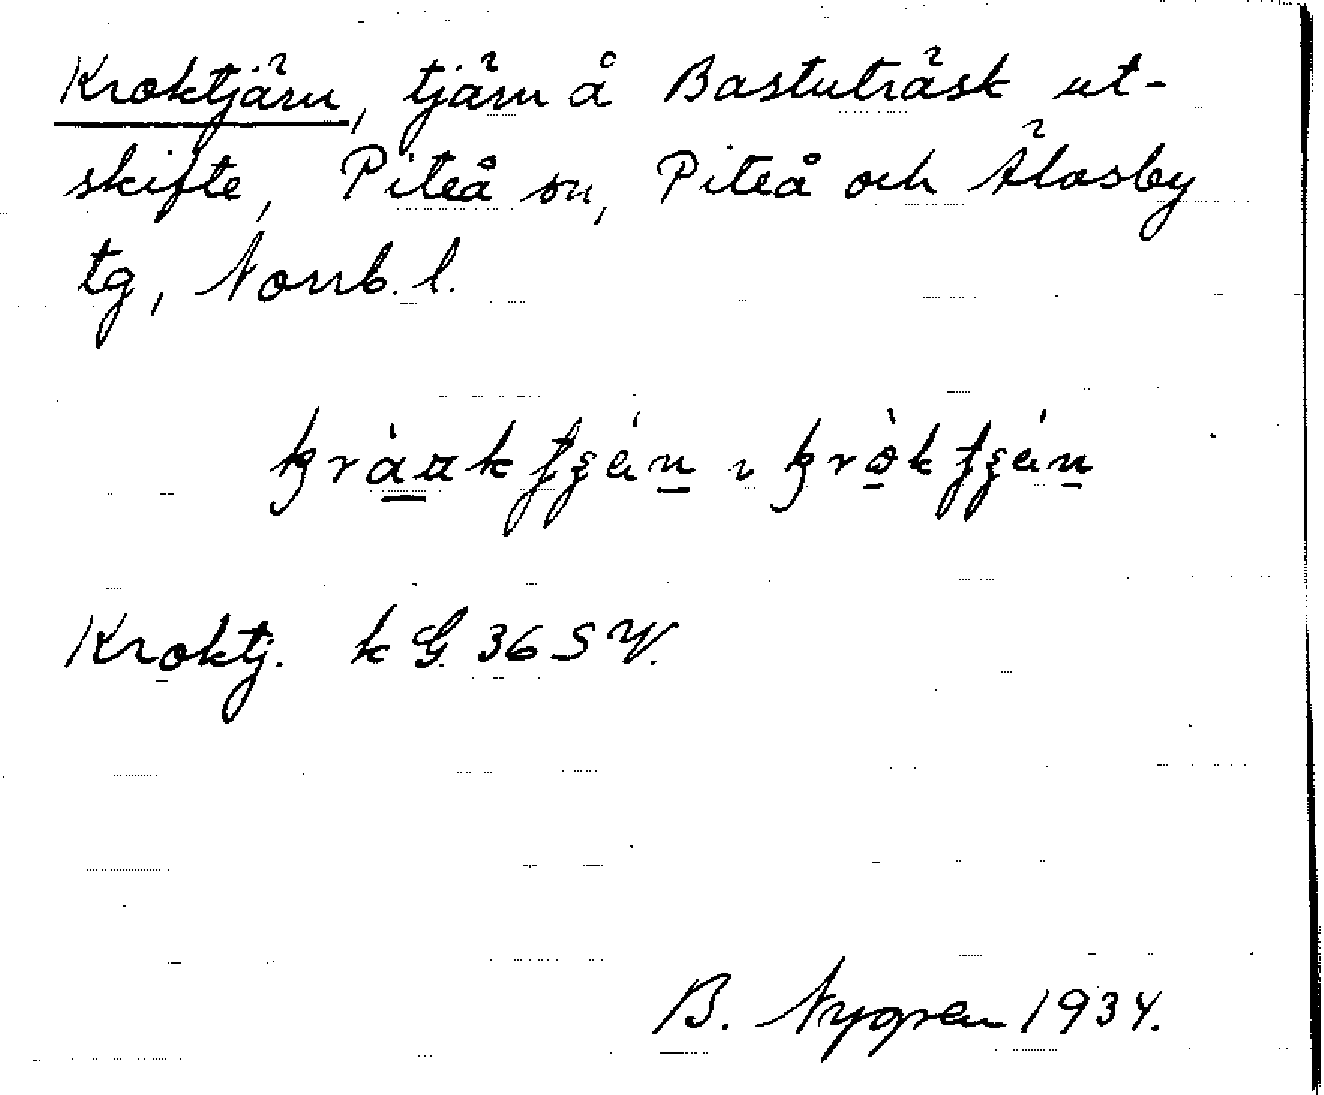 Kroktjärn, tjärn å Bastuträsk ut-
skifte, Piteå sn, Piteå och Älvsby
tg, Norrb. l.
Kroktj. k G. 36 S V.
B. Nygren 1934.